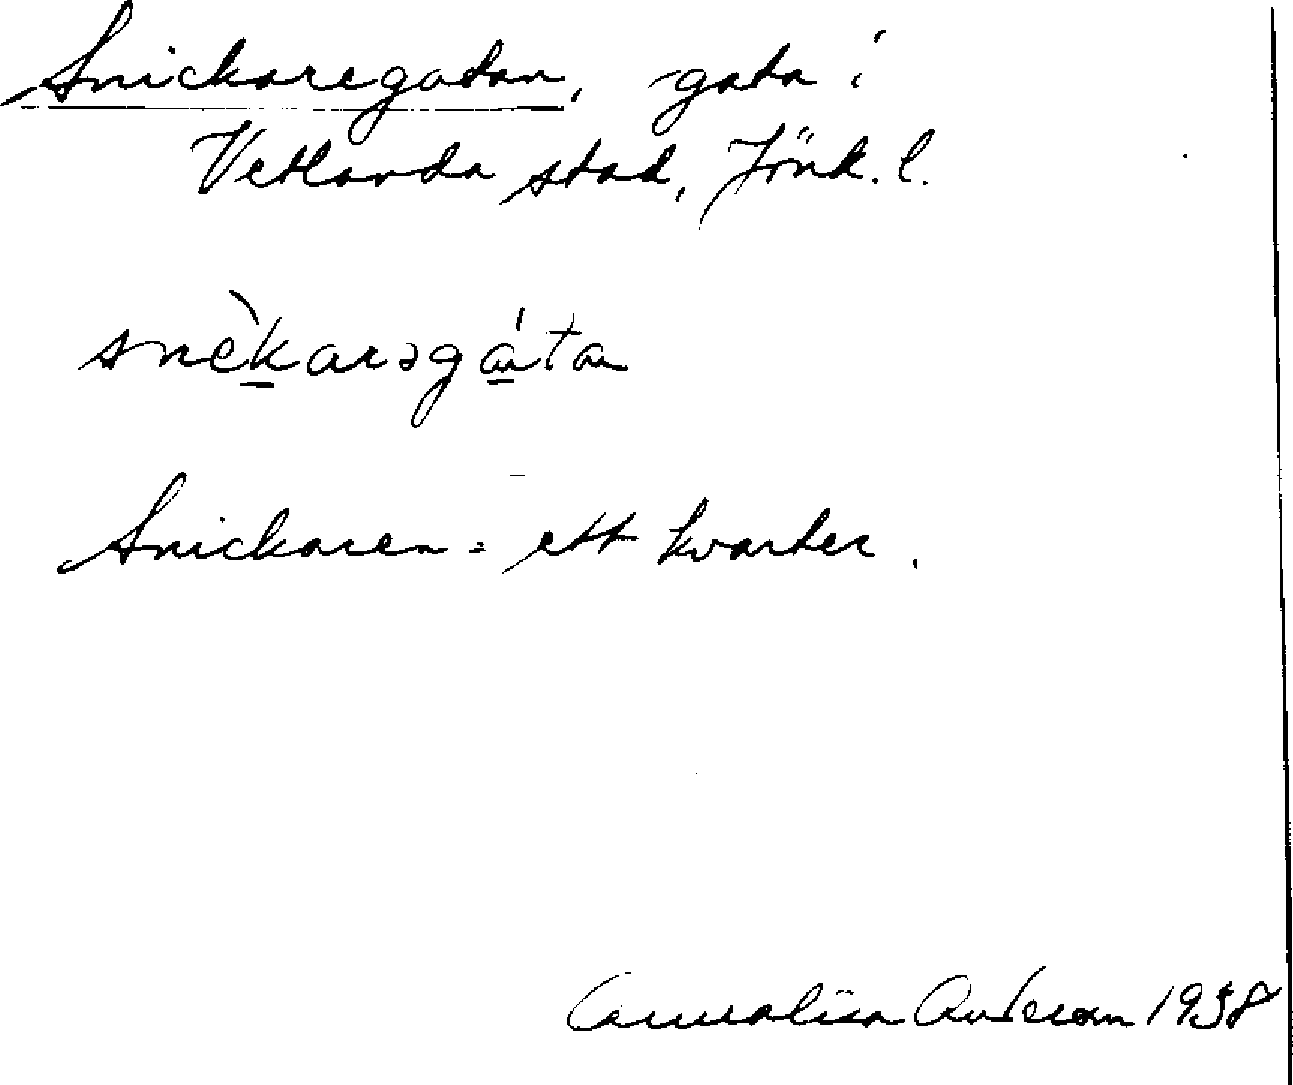 Snickaregatan, gata i
Vetlanda stad, Jönk. l.
snèkarəgáta
Snickaren = ett kvarter.
Annalisa Anderson 1938